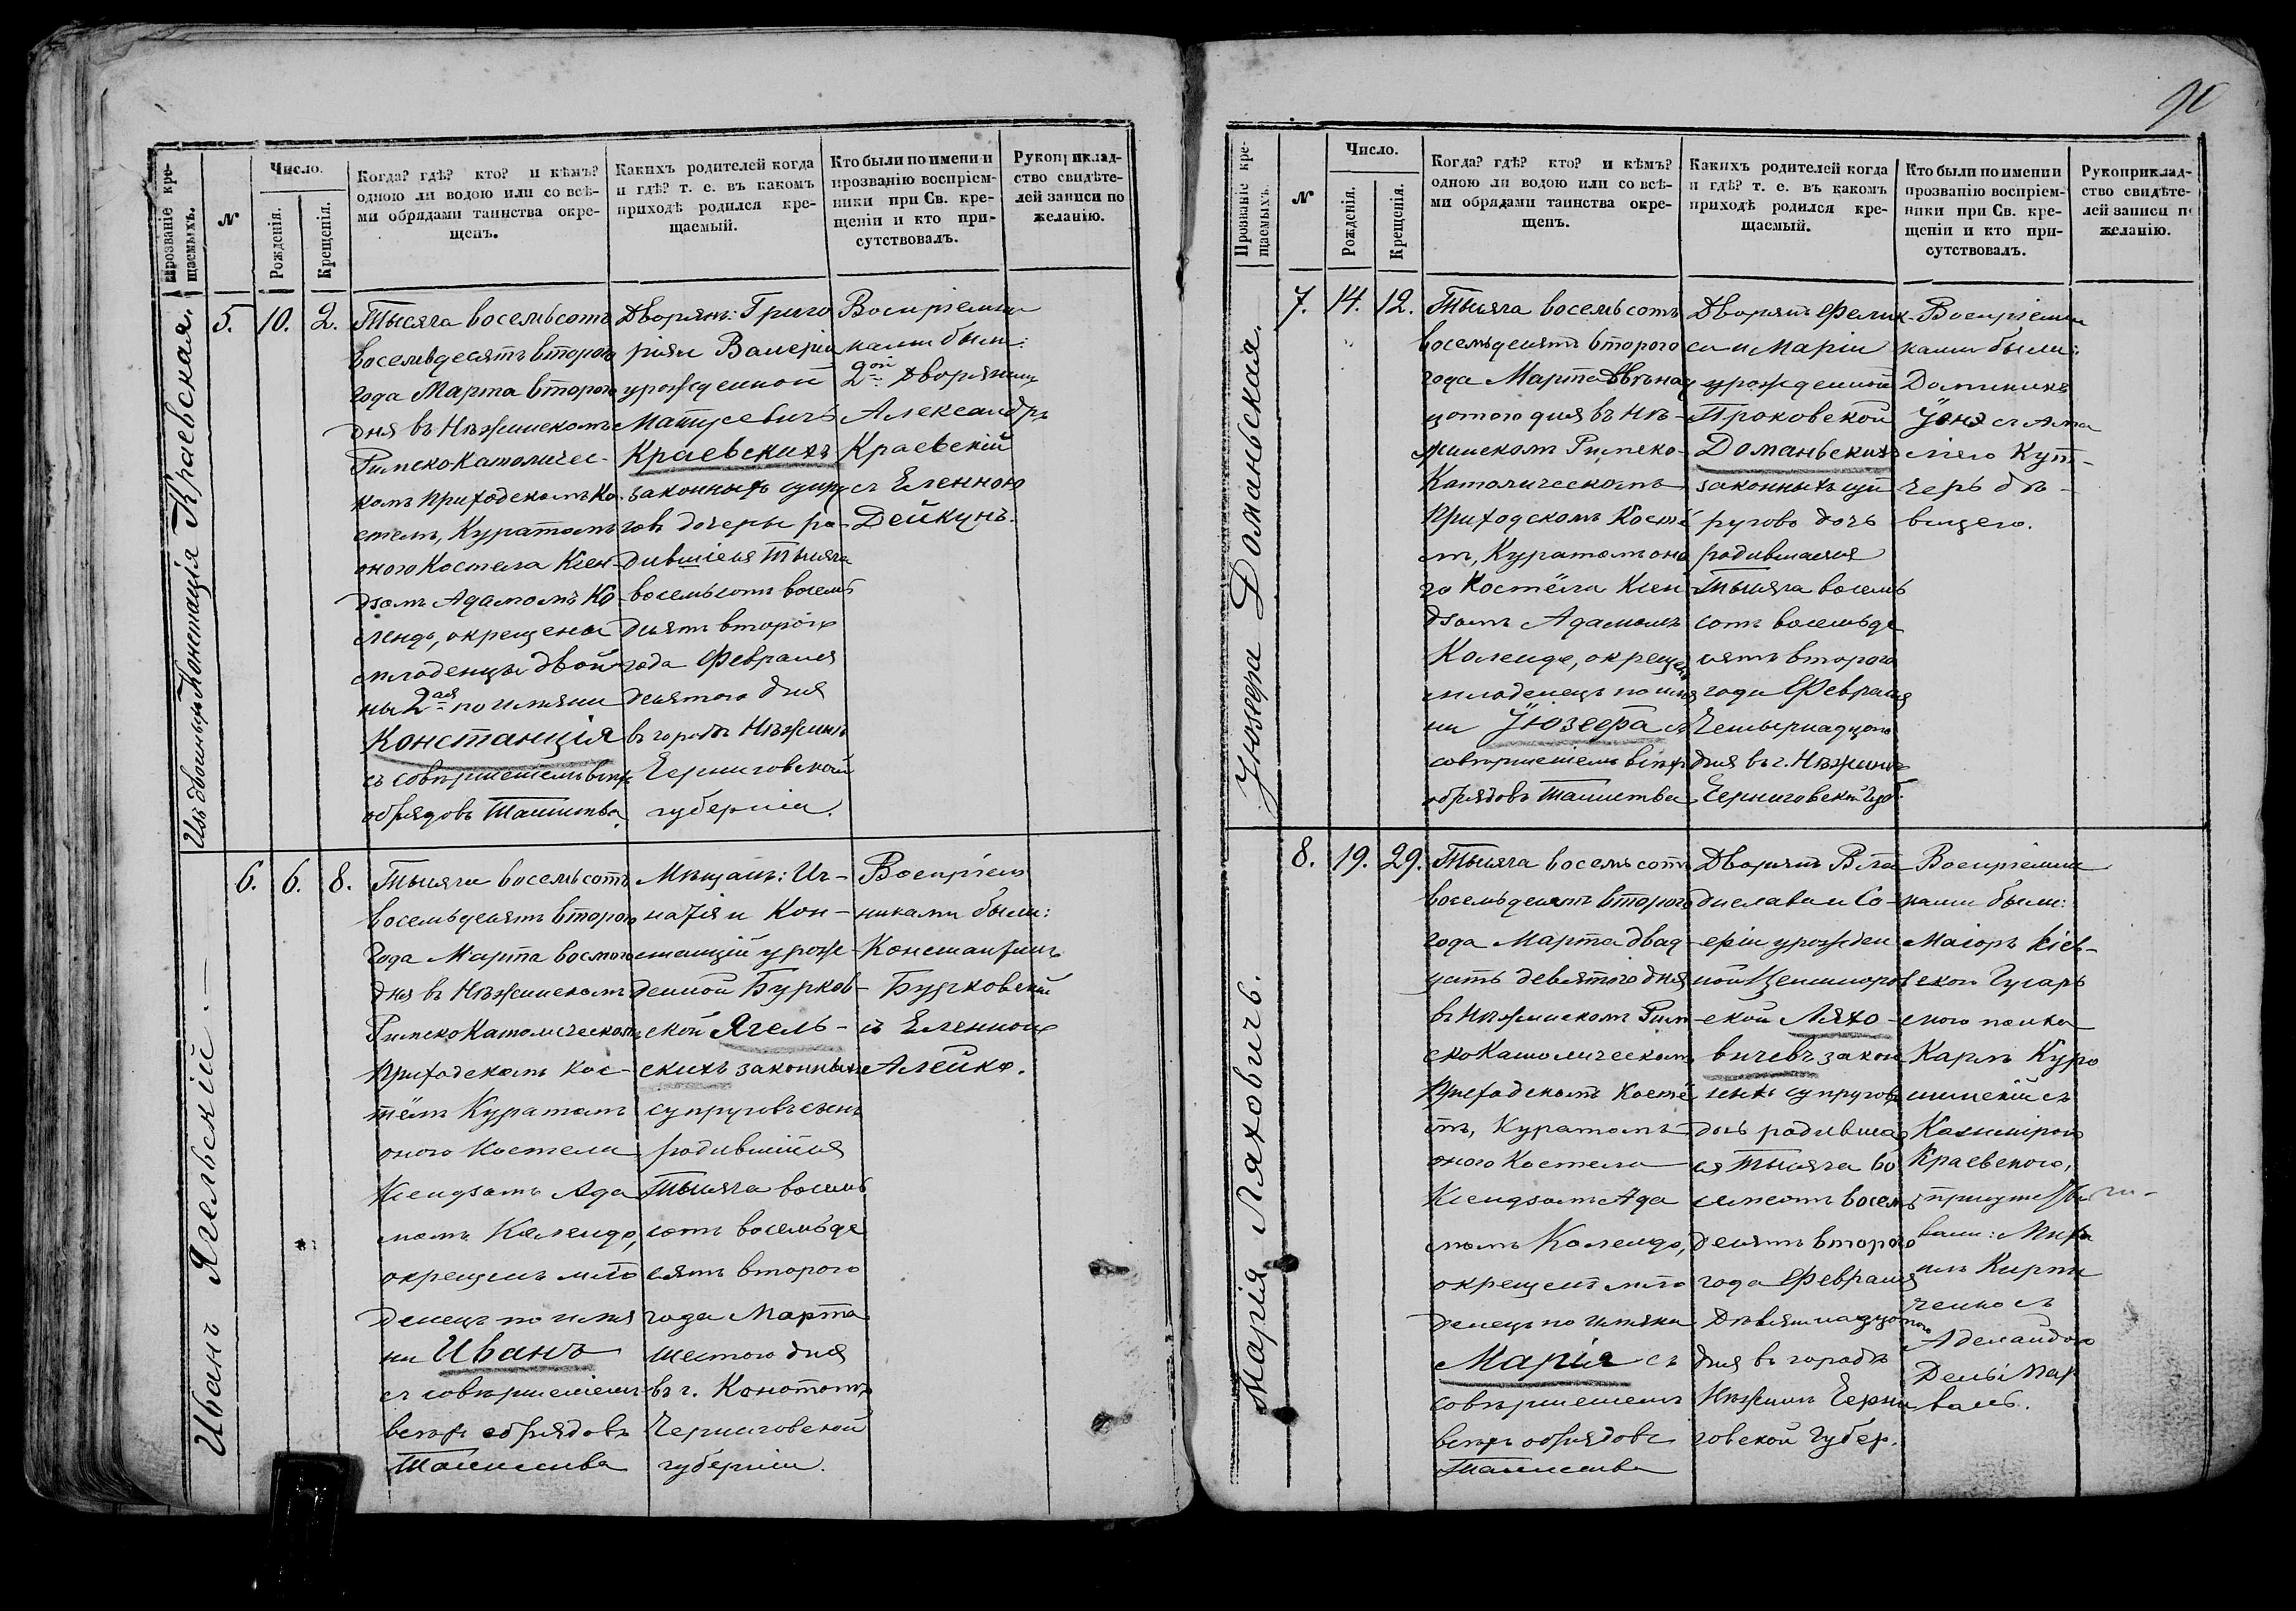 90
Прозваніе кре-
щаемыхъ.
N
Число.
Рожденія.
Крещенія.
Когда? гдѣ? кто? и кѣмъ?
одною ли водою или со всѣ-
ми обрядами таинства окре-
щенъ.
Какихъ родителей когда
и гдѣ? т. е. въ какомъ
приходѣ родился кре-
щаемый.
Кто были по имени и
прозванію воспріем-
ники при Св. кре-
щеніи и кто при-
сутствовалъ.
Рукоприклад-
ство свидѣте-
лей записи по
желанію.
Изъ двойныхъ Констанція Краевская.
5.
10.
2.
Тысяча восемьсотъ
восемьдесятъ втораго
года Марта втораго
дня въ Нѣжинскомъ
Римско Католичес-
комъ Приходскомъ Ко-
стелѣ, Куратомъ
оного Костела Ксен-
дзомъ Адамомъ Ко-
лендо, окрещены
младенцы двой-
ны 2ая по имяни
Констанція
съ совершеніемъ всѣхъ
обрядовъ Таинства.
Дворянъ: Григо
рія и Валеріи
урожденной
Матусевичъ
Краевскихъ
законныхъ супру-
говъ дочеры ро-
дившіеся Тысяча
восемьсотъ восемь
десятъ втораго
года Февраля
десятого дня
въ городѣ Нѣжинѣ
Черниговской
губерніи.
Воспріемни
ками были:
2ой Дворянинъ
Александръ
Краевскій
съ Еленною
Дейкунъ.
Иванъ Ягельскій.—
6.
6.
8.
Тысяча восемьсотъ
восемьдесятъ втораго
Года Марта восмого
дня въ Нѣжинскомъ
Римско Католическомъ
Приходскомъ Кос-
тёлѣ Куратомъ
оного Костела
Ксендзомъ Ада
момъ Календо,
окрещенъ мла
денецъ по имя
ни Иванъ
съ совершеніемъ
всѣхъ обрядовъ
Таинства
Мѣщанъ: Иг-
натія и Кон-
станціи урож-
денной Бурков-
ской Ягель-
скихъ законныхъ
супруговъ сынъ
родившійся
Тысяча восемь
сотъ восемьде
сятъ втораго
года Марта
шестого дня
въ г. Конотопѣ
Черниговской
губерніи.
Воспріем
никами были:
Константинъ
Бурковскій
съ Еленною
Алейко.
Прозваніе кре-
щаемыхъ.
N
Число.
Рожденія.
Крещенія.
Когда? гдѣ? кто? и кѣмъ?
одною ли водою или со всѣ-
ми обрядами таинства окре-
щенъ.
Какихъ родителей когда
и гдѣ? т. е. въ какомъ
приходѣ родился кре-
щаемый.
Кто были по имени и
прозванію воспріем-
ники при Св. кре-
щеніи и кто при-
сутствовалъ.
Рукоприклад-
ство свидѣте-
лей записи по
желанію.
Юзефа Доманьская.
7.
14.
12.
Тысяча восемьсотъ
восемьдесятъ втораго
года Марта двѣнад
цатого дня въ Нѣ-
жинскомъ Римско-
Католическомъ
Приходскомъ Костё
лѣ, Куратомъ она
го Костёла Ксен
дзомъ Адамомъ
Календо, окрещенъ
младенецъ по имя
ни Юзефа съ
совершеніемъ всѣхъ
обрядовъ Таинства
Дворянъ Фелик-
са и Маріи
урожденной
Проковской
Доманьскихъ
законныхъ суп
руговъ дочь
родившаяся
Тысяча восемь
сотъ восемьде
сятъ втораго
года Февраля
Четырнадцато
дня въ г. Нѣжинѣ
Черниговской Губ.
Воспріемни
ками были:
Доминикъ
съ Ама
ліею Кут-
черъ дѣ-
вицею.
Марія Ляховичъ.
8.
19.
29.
Тысяча восемьсотъ
восемьдесятъ втораго
года Марта двад-
цать девятого дня
въ Нѣжинскомъ Рим-
ско Католическомъ
Приходскомъ Костё
лѣ, Куратомъ
оного Костела
Ксендзомъ Ада
момъ Календо,
окрещенъ мла
денецъ по имяни
Марія съ
совершеніемъ
всѣхъ обрядовъ
Таинства
Дворянъ Вла
дислава и Со-
фіи урожден
ной
ской Ляхо-
вичевъ закон
ныхъ супруговъ
дочь родивша
ся Тысяча во
семьсотъ восемь
десятъ втораго
года Февраля
Девятнадцатого
дня въ городѣ
Нѣжинѣ Черни
говской Губер.
Воспріемни
ками были:
Маіоръ Кіев-
скаго Гусарь
скаго полка
Карлъ Куро
шинскій съ
Казиміроѣ
Краевского,
присутство
вали: Миха
илъ Кирпи
ченко съ
Аделаидою